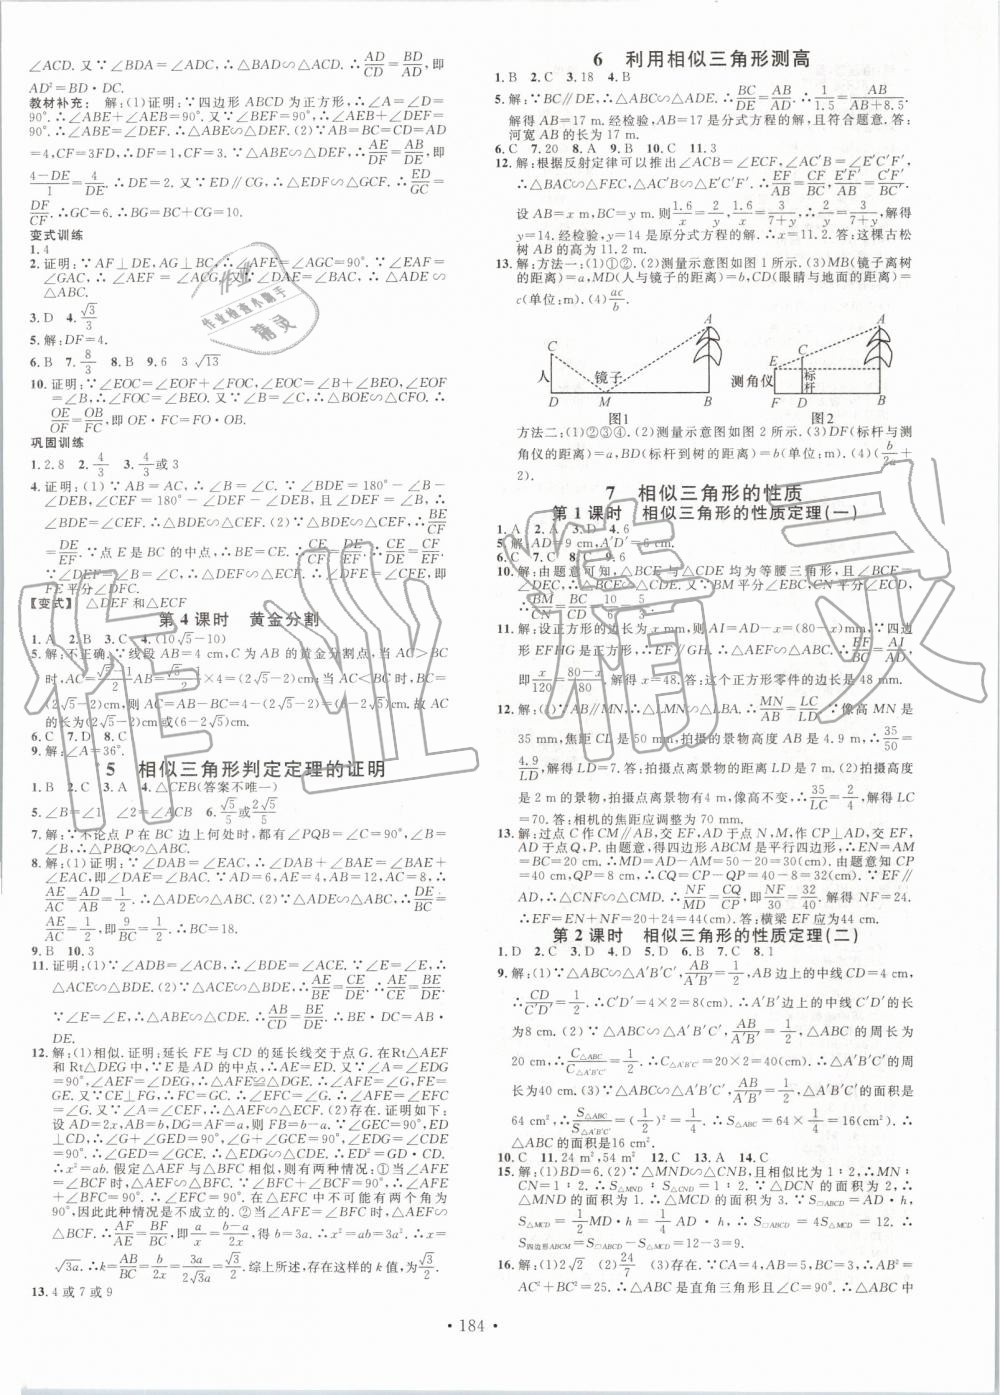 ∠ACD. 又∵∠BDA=∠ADC,∴△BAD∽△ACD,∴AD/CD=BD/AD,即
AD²=BD·CD.
教材补充: 解:(1)证明:∵四边形ABCD为正方形,∴∠A=∠D=
90°.∴∠ABE+∠AEB=90°.又∵∠BEF=90°,∴∠AEB+∠DEF=
90°.∴∠ABE=∠DEF.∴△ABE∽△DEF.(2)∵AB=BC=CD=AD
=4,CF=3FD,∴DF=1,CF=3.∵△ABE∽△DEF,∴AE/DF=AB/DE,即
(4-DE)/1=4/DE.∴DE=2.又∵ED∥CG,∴△EDF∽△GCF.∴ED/GC=
DF/CF.∴GC=6.∴BG=BC+CG=10.
变式训练
1.4
2.证明:∵AF⊥DE,AG⊥BC,∴∠AFE=∠AGC=90°.∵∠EAF=
∠GAC,∴∠AEF=∠C.又∵∠DAE=∠BAC,∴△ADE∽
△ABC.
3.D 4.√3/3
5.解:DF=4.
6.B 7.8/3 8.B 9.6 3 √13
10.证明:∵∠EOC=∠EOF+∠FOC,∠EOC=∠B+∠BEO,∠EOF
=∠B,∴∠FOC=∠BEO.又∵∠B=∠C,∴△BOE∽△CFO.∴
OE/OF=OB/FC,即OE·FC=FO·OB.
巩固训练
1.2.8 2.4/3 3.4/3或3
4.证明:(1)∵AB=AC,∴∠B=∠C.∵∠BDE=180°-∠B-
∠DEB,∠CEF=180°-∠DEF-∠DEB,且∠DEF=∠B,∴
∠BDE=∠CEF.∴△BDE∽△CEF.(2)∵△BDE∽△CEF,∴BE/CF=
DE/EF.∵点E是BC的中点,∴BE=CE.∴CE/CF=DE/EF.∴CE/DE=CF/EF.
∵∠DEF=∠B=∠C,∴△DEF∽△ECF.∴∠DFE=∠CFE,即
FE平分∠DFC.
【变式】 △DEF和△ECF
第4课时 黄金分割
1.A 2.B 3.C 4.(10√5-10)
5.解:不正确.∵线段AB=4 cm,C为AB的黄金分割点,当AC>BC
时,AC=(√5-1)/2 AB=(√5-1)/2×4=(2√5-2)cm;当AC<BC时,BC=
(2√5-2)cm,则AC=4-(2√5-2)=(6-2√5)cm.故AC
的长为(2√5-2)cm或(6-2√5)cm.
6.C 7.D 8.C
9.解:∠A=36°.
5 相似三角形判定定理的证明
1.B 2.C 3.A 4.△CEB(答案不唯一)
5.∠B=∠1 ∠2=∠ACB 6.√5/5或2√5/5
7.解:∵不论点P在BC边上何处时,都有∠PQB=∠C=90°,∠B=
∠B,∴△PBQ∽△ABC.
8.解:(1)证明:∵∠DAB=∠EAC,∴∠DAB+∠BAE=∠EAC+
∠BAE,即∠DAE=∠BAC.∵AD=6,AE=4,AB=12,AC=8,∴
AE/AC=AD/AB=1/2.∴△ADE∽△ABC.(2)∵△ADE∽△ABC,∴DE/BC=
AE/AC=1/2,即9/BC=1/2.∴BC=18.
9.B 10.3
11.证明:(1)∵∠ADB=∠ACB,∴∠BDE=∠ACE.又∵∠E=∠E,∴
△ACE∽△BDE.(2)∵△ACE∽△BDE,∴AE/BE=CE/DE.∴AE/CE=BE/DE.
∵∠E=∠E,∴△ABE∽△CDE.∴AB/CD=BE/DE.∴BE·DC=AB·
DE.
12.解:(1)相似.证明:延长FE与CD的延长线交于点G.在Rt△AEF
和Rt△DEG中,∵E是AD的中点,∴AE=ED.又∵∠A=∠EDG
=90°,∠AEF=∠DEG,∴△AFE≌△DGE.∴∠AFE=∠G,FE=
GE.又∵CE⊥FG,∴FC=GC.∴∠EFC=∠G.∴∠AFE=∠EFC
=∠G.又∵∠A=∠FEC=90°,∴△AEF∽△ECF.(2)存在.证明如下:
设AD=2x,AB=b,DG=AF=a,则FB=b-a.∵∠GEC=90°,ED
⊥CD,∴∠G+∠GED=90°,∠GED+∠DEC=90°,∠EDG=∠CDE
=90°.∴∠G=∠DEC.∴△EDG∽△CDE.∴DE²=GD·CD.
∴x²=ab.假定△AEF与△BFC相似,则有两种情况:①当∠AFE
=∠BCF时,∵∠AFE=∠EFC,∴∠EFC+∠BFC=∠AFE+∠BFC=
90°,因此此种情况是不成立的.②当∠AFE=∠BFC时,△AEF∽
△BCF.∴AF/BF=AE/BC,即a/(b-a)=x/2x.得b=3a.∴x²=ab=3a².∴x=
√3a.∴k=AB/BC=b/2x=3a/2√3a=√3/2.综上所述,存在这样的k值,为√3/2.
13.4或7或9
6 利用相似三角形测高
1.B 2.C 3.18 4.B
5.解:∵BC∥DE,∴△ABC∽△ADE.∴BC/DE=AB/AD.∴1/1.5=AB/(AB+8.5).
解得AB=17 m.经检验,AB=17是分式方程的解,且符合题意.答:
河宽AB的长为17 m.
6.C 7.20 8.A 9.B 10.C 11.3
12.解:根据反射定律可以推出∠ACB=∠ECF,∠AC′B=∠E′C′F′,
∴△BAC∽△FEC,△AC′B∽△E′C′F′.∴EF/AB=CF/BC,E′F′/AB=C′F′/BC′.
设AB=x m,BC=y m.则1.6/x=2/y,1.6/x=3/(7+y).∴2/y=3/(7+y),解得
y=14.经检验,y=14是原分式方程的解.∴x=11.2.答:这棵古松
树AB的高为11.2 m.
13.解:方法一:(1)①②.(2)测量示意图如图1所示.(3)MB(镜子离树
的距离)=a,MD(人与镜子的距离)=b,CD(眼睛与地面的距离)=
c(单位:m).(4)ac/b
C A 人 镜子 D M B 图1
A C E 测角仪 标杆 F D B 图2
方法二:(1)①③④.(2)测量示意图如图2所示.(3)DF(标杆与测
角仪的距离)=a,BD(标杆到树的距离)=b(单位:m).(4)(b/2a+
2).
7 相似三角形的性质
第1课时 相似三角形的性质定理(一)
1.A 2.A 3.D 4.6
6.C 7.C 8.C 9.6
10.解:由题意可知,△BCE与△CDN均为等腰三角形,且∠BCE=
11.解:设正方形的边长为x mm,则AI=AD-x=(80-x)mm.∵四边
形EFHG是正方形,∴EF∥GH.∴△AEF∽△ABC.∴EF/BC=AI/AD,即
x/120=(80-x)/80.解得x=48.答:这个正方形零件的边长是48 mm.
12.解:(1)∵MN∥AB,∴△LMN∽△LBA.∴MN/AB=LC/LD.∵像高MN是
35 mm,焦距LC是50 mm,拍摄的景物AB是4.9 m,∴35/50=
4.9/LD.∴LD=7.答:拍摄点离景物的距离是7 m.(2)拍摄高度
是2 m的景物,拍摄点离景物有4 m,像高不变,∴35/LC=2/4,解得LC
=70.答:相机的焦距应调整为70 mm.
13.解:过点C作CM∥AB,交EF,AD于点N,M,作CP⊥AD,交EF,
AD于点Q,P.由题意,得四边形ABCM是平行四边形,∴EN=AM
=BC=20 cm.∴MD=AD-AM=50-20=30(cm).由题意知CP
=40 cm,QP=8 cm,∴CQ=CP-QP=40-8=32(cm).∵EF∥
AD,∴△CNF∽△CMD.∴NF/MD=CQ/CP,即NF/30=32/40.解得NF=24.
∴EF=EN+NF=20+24=44(cm).答:横梁EF应为44 cm.
第2课时 相似三角形的性质定理(二)
1.D 2.C 3.D 4.D 5.A 6.B 7.C 8.1
9.解:(1)∵△ABC∽△A′B′C′,AB/A′B′=1/2,AB边上的中线CD=4 cm,
∴CD/C′D′=1/2.∴C′D′=4×2=8(cm).∴A′B′边上的中线C′D′的长
为8 cm.(2)∵△ABC∽△A′B′C′,AB/A′B′=1/2,△ABC的周长为
20 cm,∴C△ABC/C△A′B′C′=1/2.∴C△A′B′C′=20×2=40(cm).∴△A′B′C′的周
长为40 cm.(3)∵△ABC∽△A′B′C′,AB/A′B′=1/2,△A′B′C′的面积是
64 cm²,∴S△ABC/S△A′B′C′=(1/2)²=1/4.∴S△ABC=64×1/4=16(cm²).∴
△ABC的面积是16 cm².
10.C 11.24 m²,54 m² 12.C 13.A 14.C
15.解:(1)BD=6.(2)∵△MND∽△CNB,且相似比为1∶2,∴MN∶
CN=1∶2.∴S△MND∶S△CND=1∶2.∵△DCN的面积为2,∴
△MND的面积为1.∴△MCD的面积为3.∵S□ABCD=AD·h,
S△MCD=1/2MD·h=1/4AD·h,∴S□ABCD=4S△MCD=12.∴
S四边形ABCM=S□ABCD-S△MCD=12-3=9.
16.解:(1)2√2 (2)24/7 (3)存在.∵CA=4,AB=5,BC=3,∴AB²=
AC²+BC²=25.∴△ABC是直角三角形,且∠ACB=90°.∴AB中
·184·